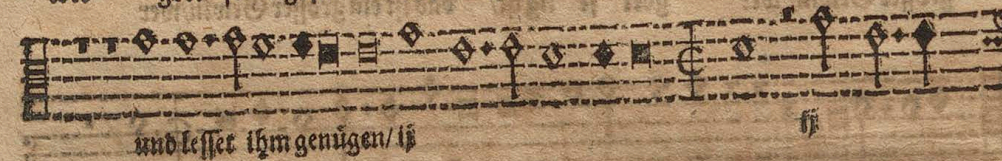 und lesset ihm genügen/ ij ij